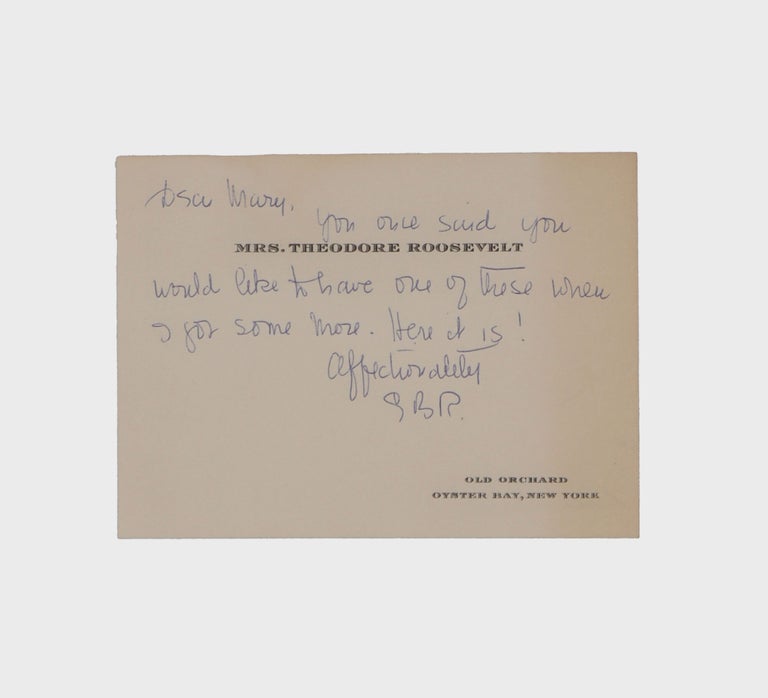 Dear Mary,
You once said you
MRS. THEODORE ROOSEVELT
would like to have one of these when
I got some more. Here it is!
Affectionately
EBR.
OLD ORCHARD
OYSTER BAY, NEW YORK